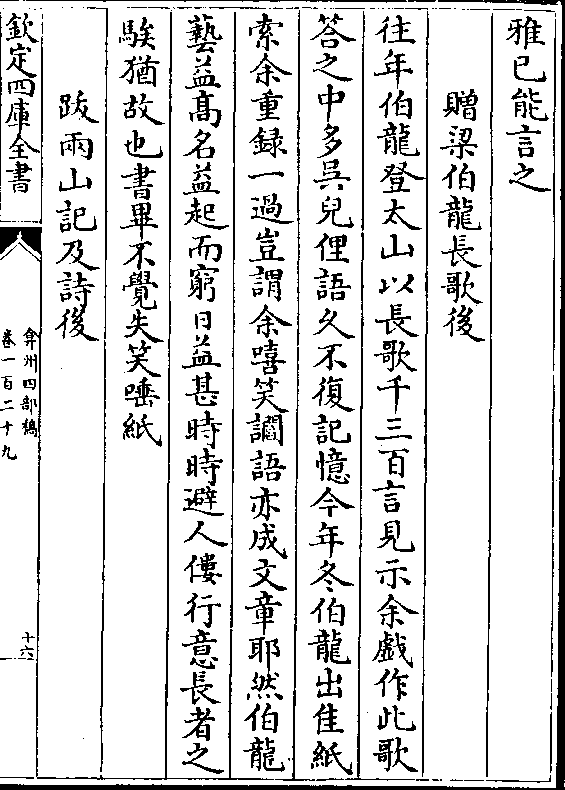 雅已能言之
贈梁伯龍長歌後
往年伯龍登太山以長歌千三百言見示余戲作此歌
答之中多吳兒俚語久不復記憶今年冬伯龍出佳紙
索余重録一過豈謂余嘻笑讕語亦成文章耶然伯龍
藝益高名益起而窮日益甚時時避人僂行意長者之
騃猶故也書畢不覺失笑唾紙
跋兩山記及詩後
欽定四庫全書
弇州四部稿
卷一百二十九
十六